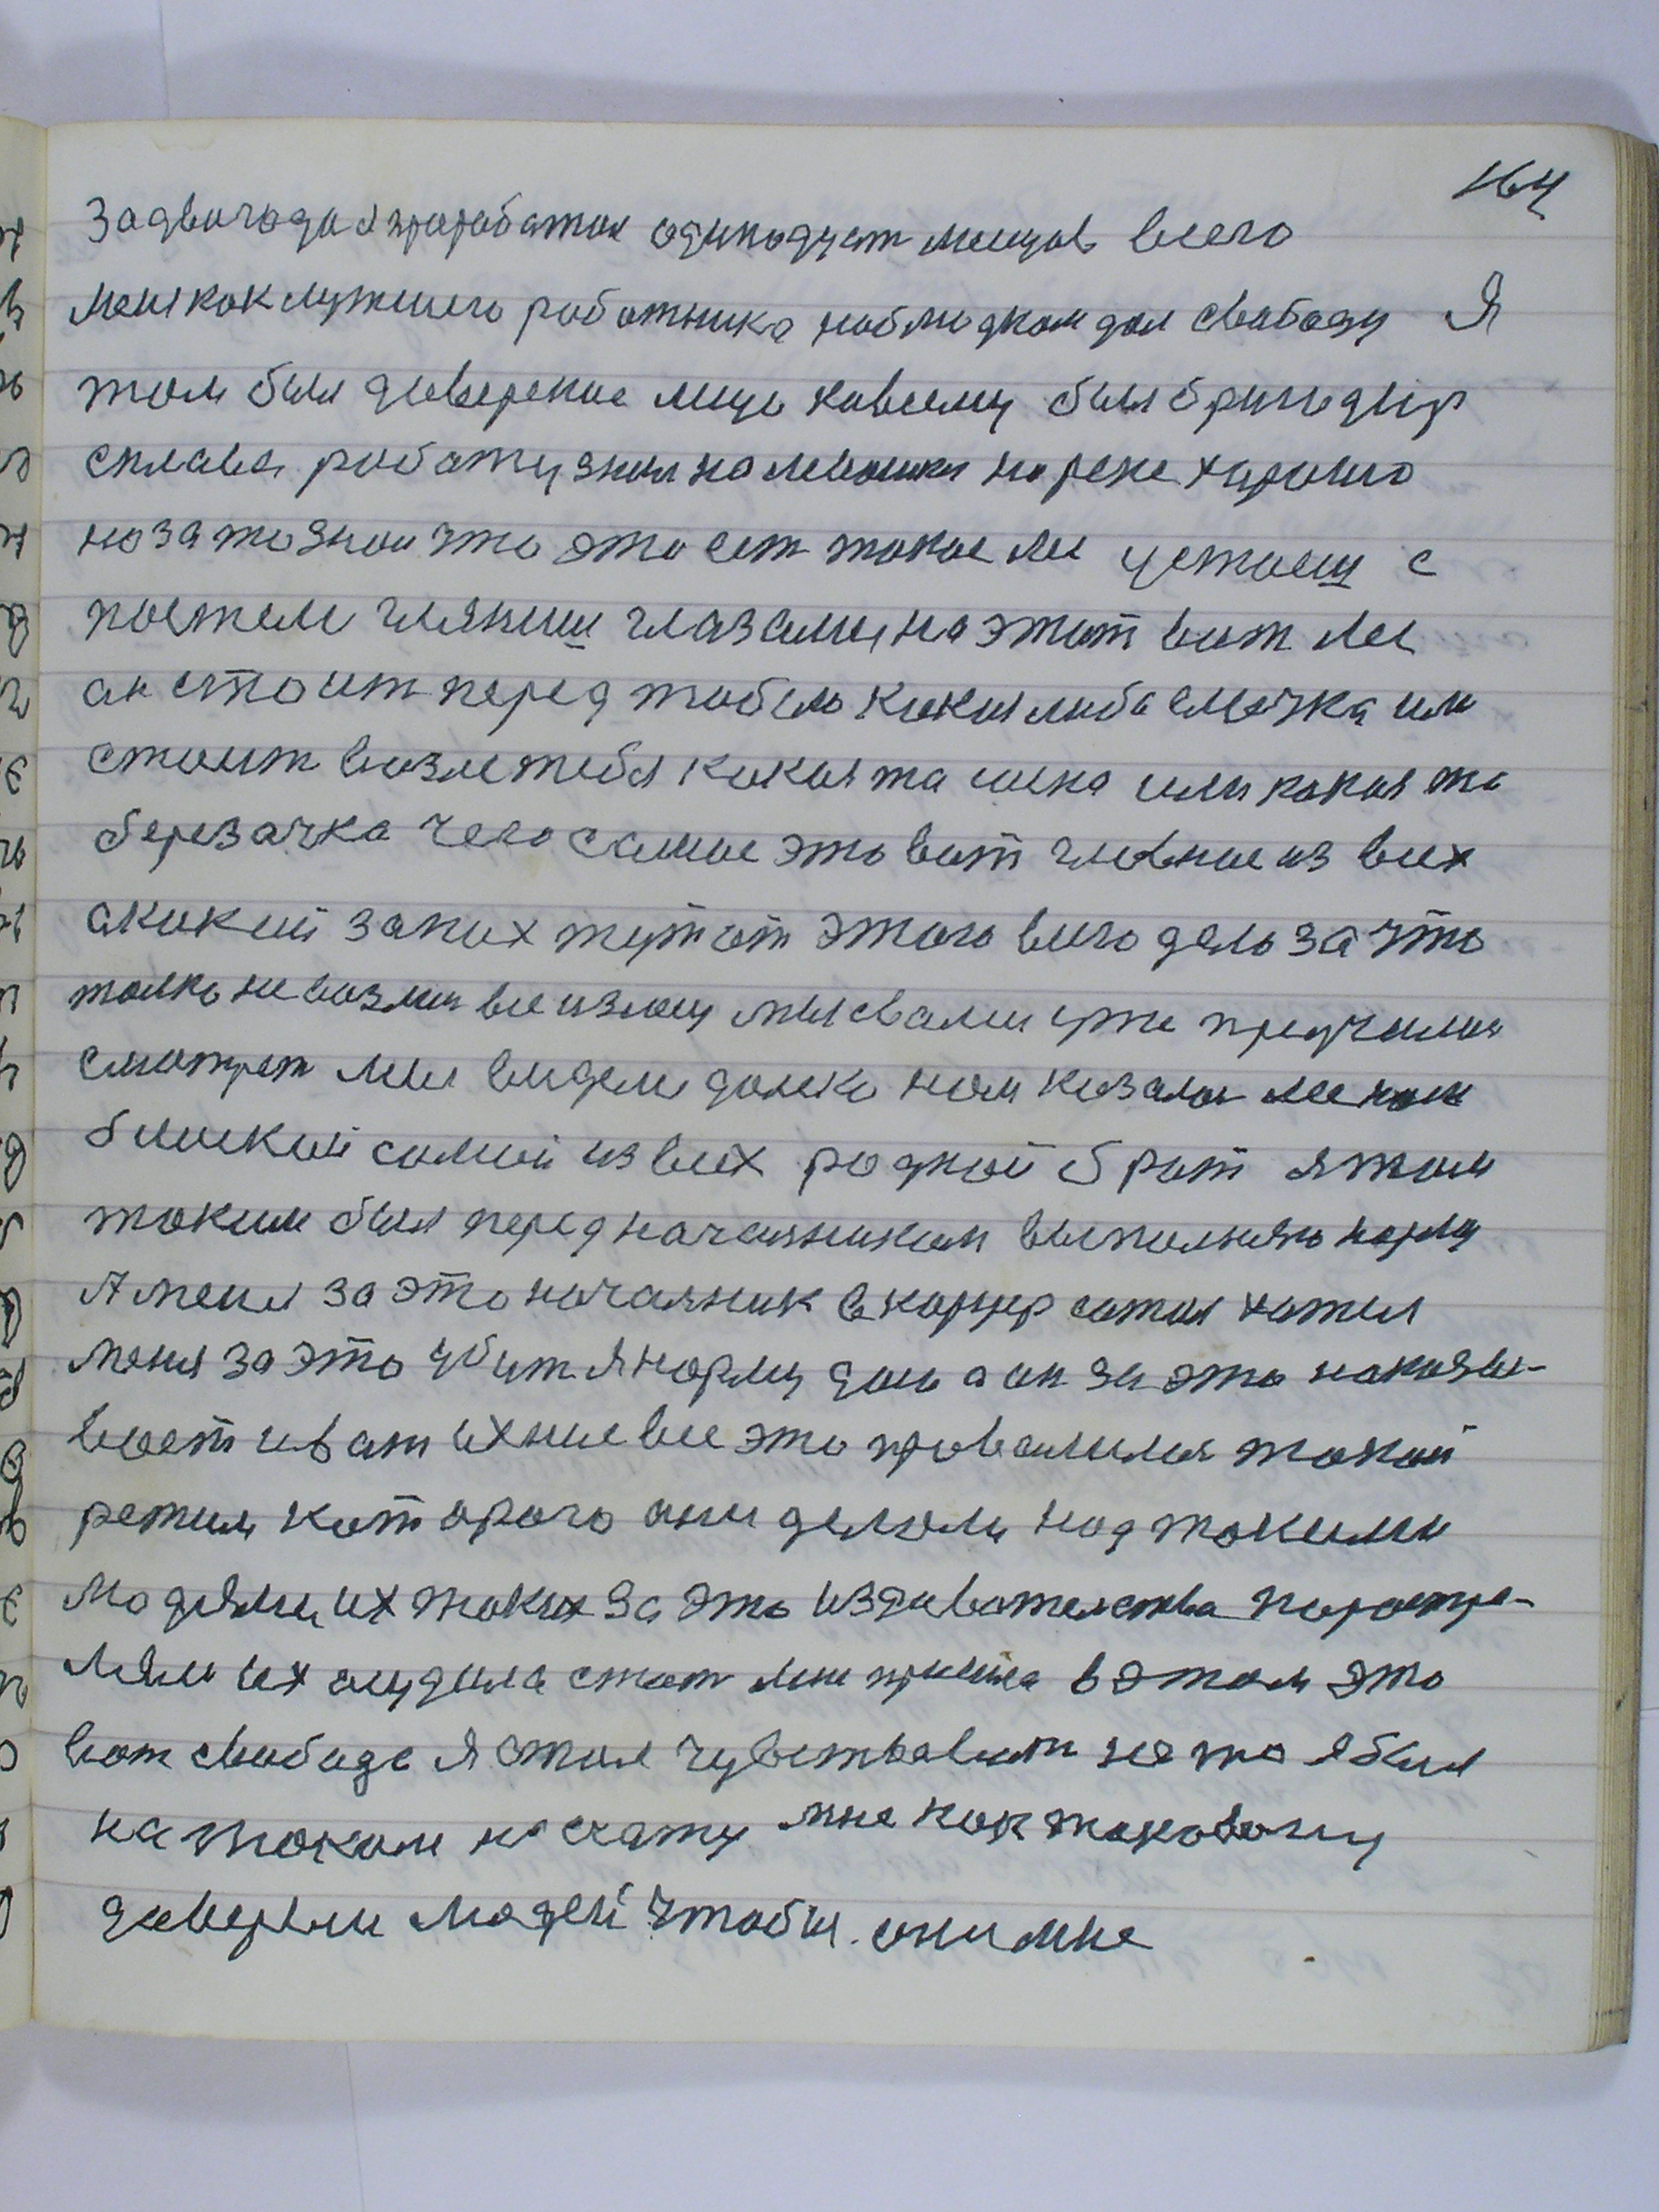 164
За два года я проработал одинодцат месяцов всего
меня как лутшего работника наблюдком дал свабоду Я
там был давереное лицо ковсему был бригодир
сплава работу знал на лесошки на реке харашо
но за то знал что это ест такое лес устаеш с
постели гляниш глазами на этот вот лес
ан стоит перед тобою какая либа елочка или
стоит возле тебя какая та сосна или какая та
березачка чего самое это вот главное из всех
а какий запих тут от этого всего дела за что
только не возми все излесу мы свами уже преучилися
смотрет мы видели далеко нам казался лес нам
близкий самый из всех родной брат я там
таким был перед начальником выполняю норму
А меня за это начальник в карцер сажал хател
меня за это убит я норму даю а он за это наказы-
вает и вот ихние все это провалился такой
режим каторого они делали над такими
людями их таких за это издевательства порастре-
ляли их осудила стат мне пришла в этом это
вот свобода я стал чувствоват на то я был
на таком на счату мне как таковому
даверяли людей чтобы они мне